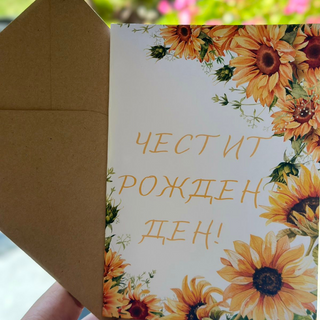 ЧЕСТИТ
РОЖДЕН
ДЕН!